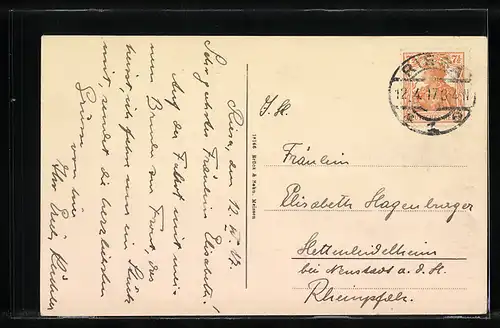 Riesa, den 12. IV. 17.
Sehr geehrtes Fräulein Elisabeth!
Auf der Fahrt mit mei-
nem Bruder zur Front, das
heisst, ich fahre nur ein Stück
mit, sendet die herzlichsten
Grüsse von hier
Ihr Erich
14166 Brück & Sohn, Meissen
RIESA
12.4.17.
7½
Fräulein
Elisabeth Hagenburger
Hettenleidelheim
bei Neustadt a. d. H.
Rheinpfalz.